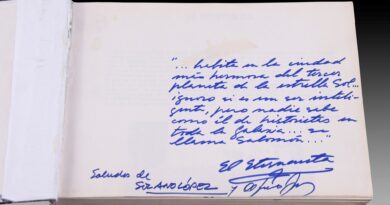 "... habita en la ciudad
más hermosa del tercer
planeta de la estrella Sol...
ignoro si es un ser inteli-
gente, pero nadie sabe
como él de historietas en
toda la Galaxia... se
llama Salomón..."
El Eternauta
Saludos de
SOLANO LÓPEZ y